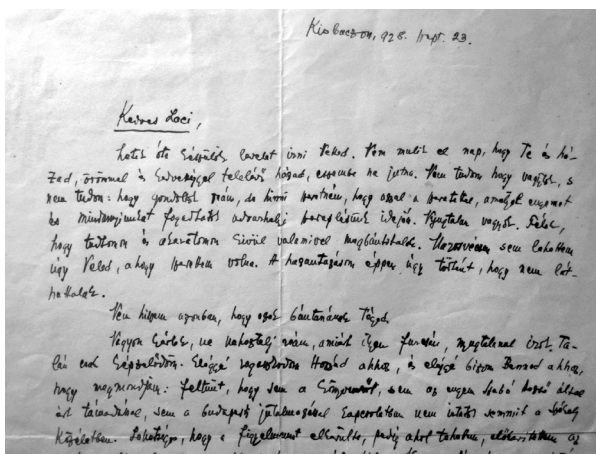 Kisbaczon, 928. szept. 23.
Kedves Laci,
hetek óta készülök levelet írni Neked. Nem mulik el nap, hogy Te és há-
zad, örömmel és kedvességgel teleliő házad, eszembe ne jutna. Nem tudom hogy vagytok, s
nem tudom: hogy gondolsz reám, de hinni szeretném, hogy azzal a szeretettel, amellyel engemet
és mindnyájunkat fogadtatok udvarhelyi szereplésünk idején. Nyugtalan vagyok. Félek,
hogy tudtomon és akaratomon kivül valamivel megbántottalak. Marosvécsen sem lehettem
ugy Veled, ahogy szerettem volna. A hazautazásom éppen úgy történt, hogy nem lát-
hattalak.
Nem hiszem azonban, hogy ezek bántanának Téged.
Nagyon kérlek, ne neheztelj reám, amiért ilyen furcsán, nyugtalanul irok. Ta-
lán csak képzelődöm. Eléggé ragaszkodom Hozzád ahhoz, és eléggé bizom Benned ahhoz,
hogy megmondjam: feltünt, hogy sem a sem az engem Szabó által
ért támadással, sem a budapesti jutalmazással kapcsolatban nem irtatok semmit a Székely
Közéletben. Lehetséges, hogy a figyelmemet elkerülte, pedig ahol tehetem, az